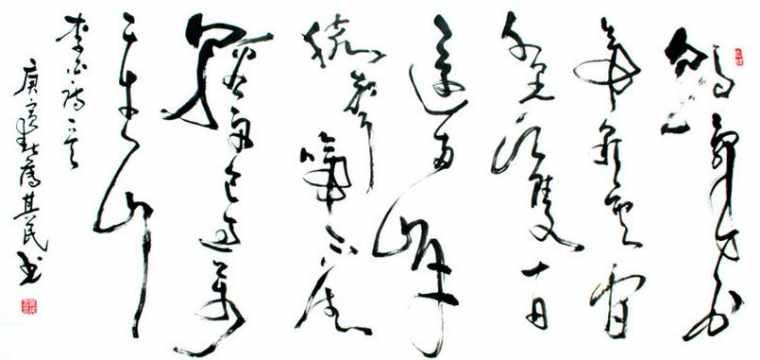 朝辞白帝
彩云间
千里江陵一日
还两岸
猿声啼不住
轻舟已过万
重山
李白诗一首
庚寅其民书